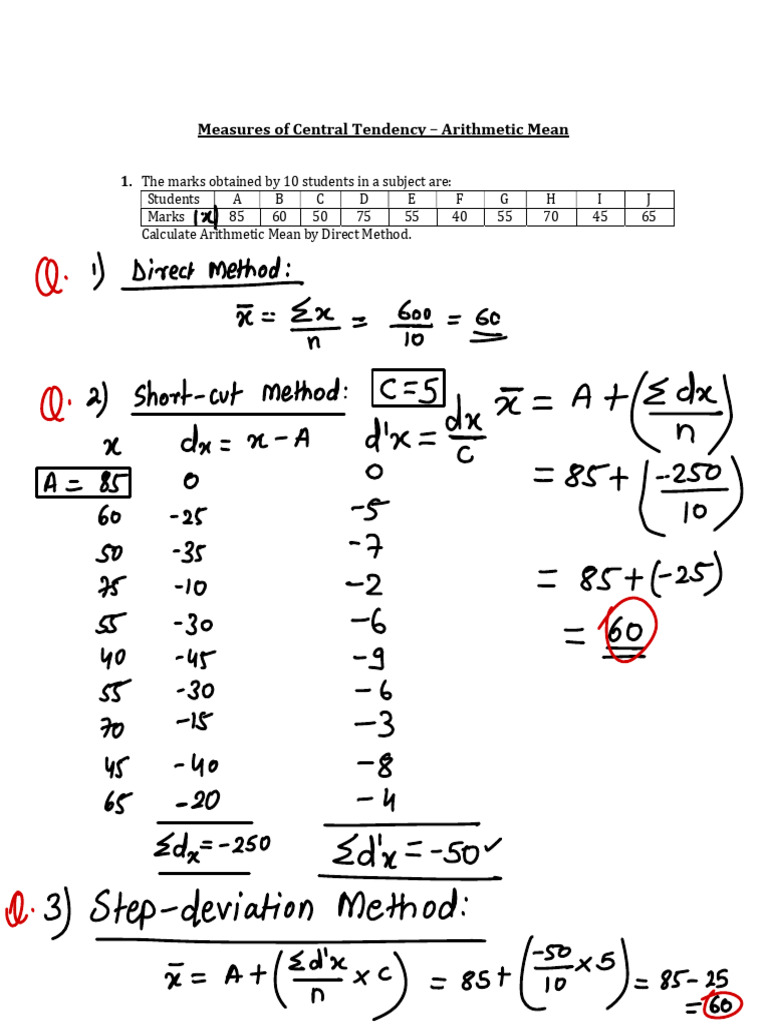 Measures of Central Tendency – Arithmetic Mean
1. The marks obtained by 10 students in a subject are:
Students A B C D E F G H I J
Marks (x) 85 60 50 75 55 40 55 70 45 65
Calculate Arithmetic Mean by Direct Method.
Q. 1) Direct Method:
x̄ = Σx/n = 600/10 = 60
Q. 2) Short-cut Method: C=5
x dx = x - A d'x = dx/c
A = 85 0 0
60 -25 -5
50 -35 -7
75 -10 -2
55 -30 -6
40 -45 -9
55 -30 -6
70 -15 -3
45 -40 -8
65 -20 -4
Σdx = -250 Σd'x = -50 ✓
x̄ = A + (Σdx/n)
= 85 + (-250/10)
= 85 + (-25)
= 60
Q. 3) Step-deviation Method:
x̄ = A + (Σd'x/n × C) = 85 + (-50/10 × 5) = 85 - 25
= 60